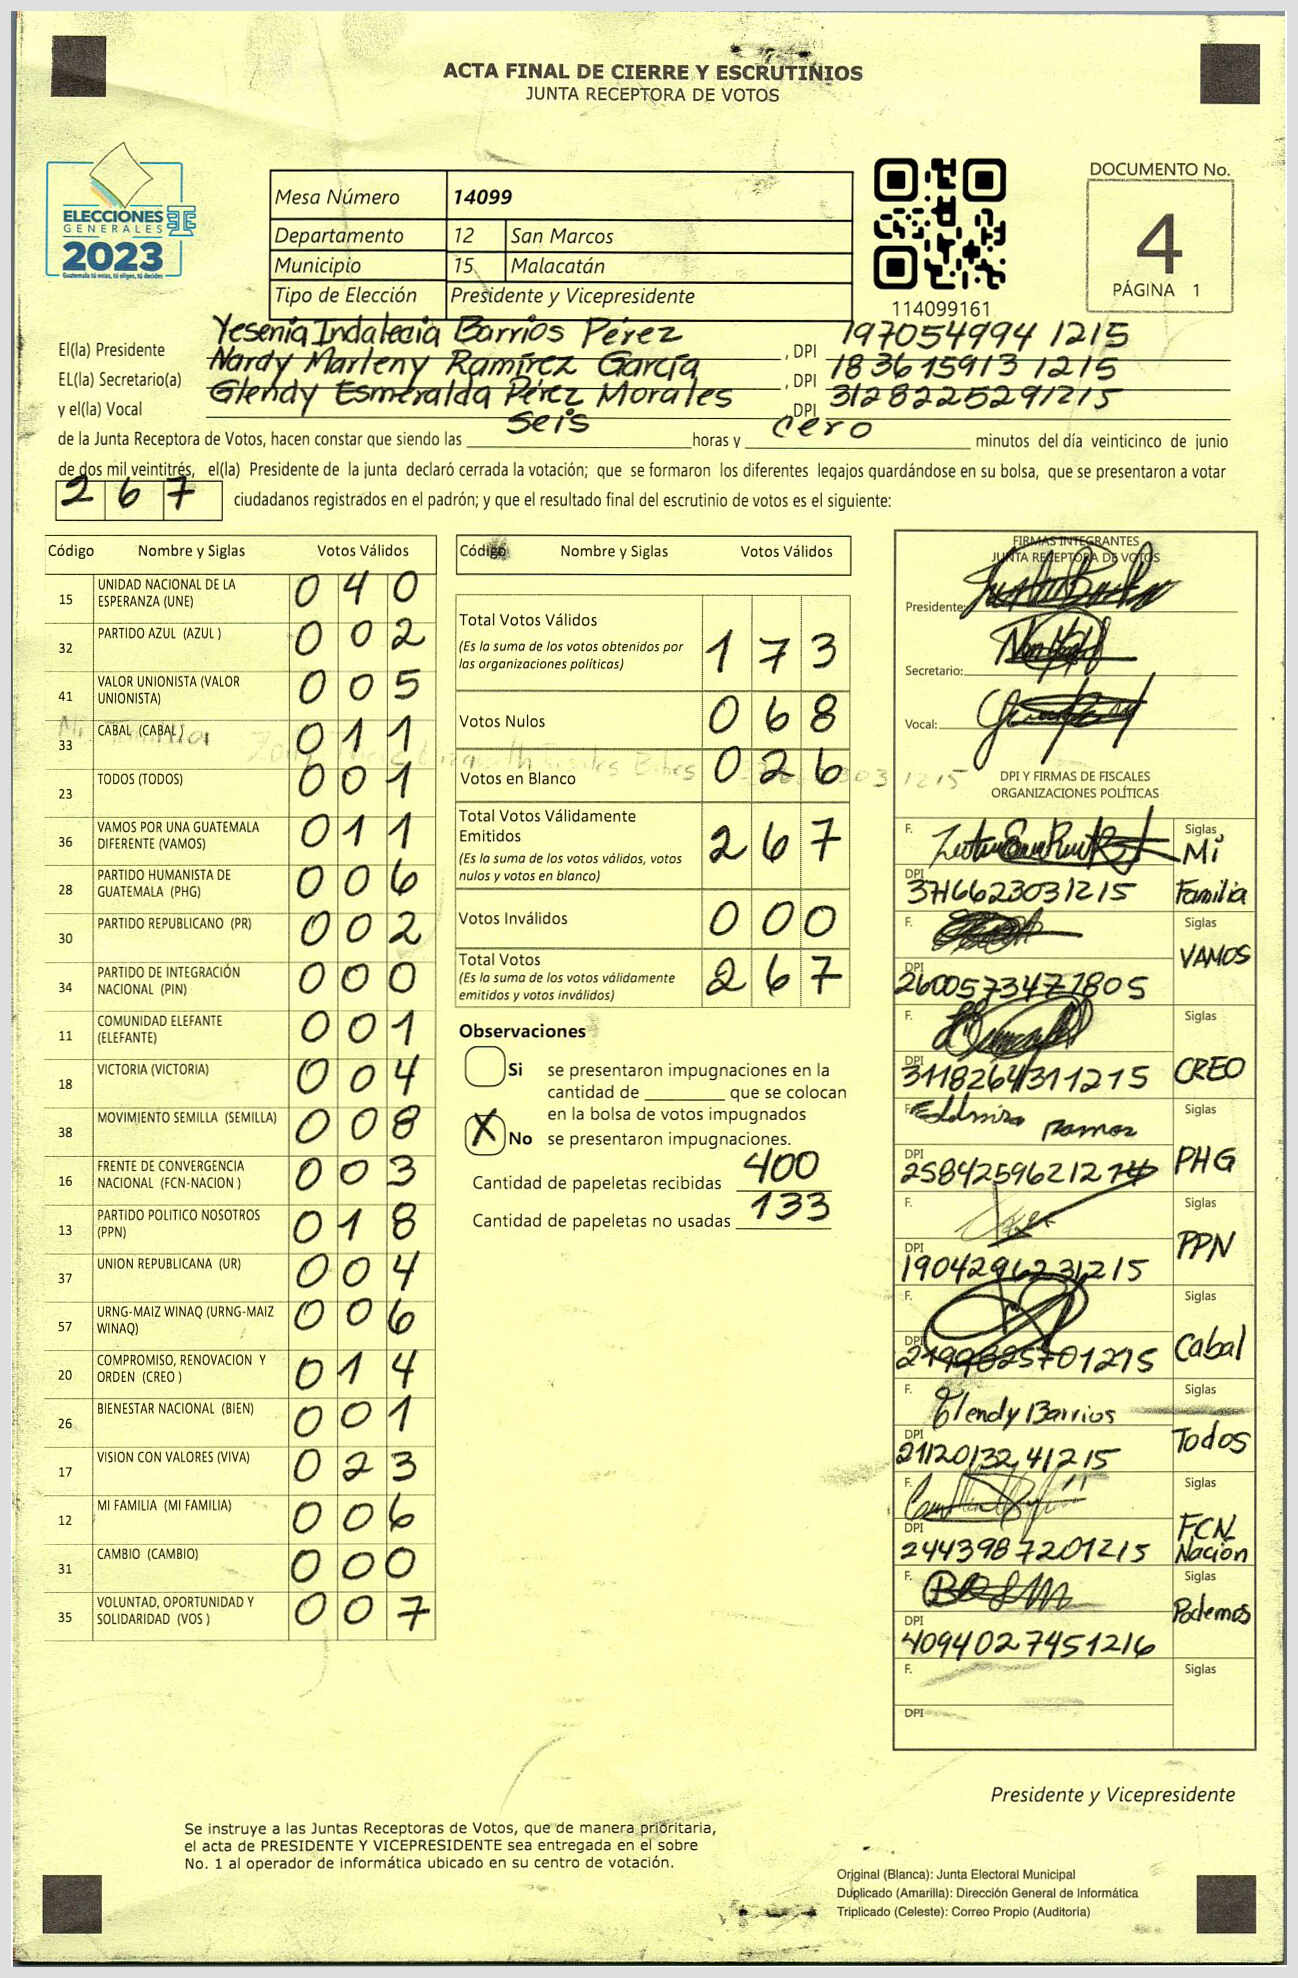 ACTA FINAL DE CIERRE Y ESCRUTINIOS
JUNTA RECEPTORA DE VOTOS
ELECCIONES
GENERALES
2023
Guatemala tú votas, tú eliges, tú decides
Mesa Número 14099
Departamento 12 San Marcos
Municipio 15 Malacatán
Tipo de Elección Presidente y Vicepresidente
114099161
DOCUMENTO No.
4
PÁGINA 1
El(la) Presidente Yesenia Indalecia Barrios Pérez , DPI 197054994 1215
EL(la) Secretario(a) Nardy Marleny Ramírez García , DPI 183615913 1215
y el(la) Vocal Glendy Esmeralda Pérez Morales , DPI 3128225291215
de la Junta Receptora de Votos, hacen constar que siendo las seis horas y cero minutos del día veinticinco de junio
de dos mil veintitrés, el(la) Presidente de la junta declaró cerrada la votación; que se formaron los diferentes legajos guardándose en su bolsa, que se presentaron a votar
267 ciudadanos registrados en el padrón; y que el resultado final del escrutinio de votos es el siguiente:
Código Nombre y Siglas Votos Válidos
15 UNIDAD NACIONAL DE LA ESPERANZA (UNE) 040
32 PARTIDO AZUL (AZUL ) 002
41 VALOR UNIONISTA (VALOR UNIONISTA) 005
33 CABAL (CABAL ) 011
23 TODOS (TODOS) 001
36 VAMOS POR UNA GUATEMALA DIFERENTE (VAMOS) 011
28 PARTIDO HUMANISTA DE GUATEMALA (PHG) 006
30 PARTIDO REPUBLICANO (PR) 002
34 PARTIDO DE INTEGRACIÓN NACIONAL (PIN) 000
11 COMUNIDAD ELEFANTE (ELEFANTE) 001
18 VICTORIA (VICTORIA) 004
38 MOVIMIENTO SEMILLA (SEMILLA) 008
16 FRENTE DE CONVERGENCIA NACIONAL (FCN-NACION ) 003
13 PARTIDO POLITICO NOSOTROS (PPN) 018
37 UNION REPUBLICANA (UR) 004
57 URNG-MAIZ WINAQ (URNG-MAIZ WINAQ) 006
20 COMPROMISO, RENOVACION Y ORDEN (CREO ) 014
26 BIENESTAR NACIONAL (BIEN) 001
17 VISION CON VALORES (VIVA) 023
12 MI FAMILIA (MI FAMILIA) 006
31 CAMBIO (CAMBIO) 000
35 VOLUNTAD, OPORTUNIDAD Y SOLIDARIDAD (VOS ) 007
Código Nombre y Siglas Votos Válidos
Total Votos Válidos 173
(Es la suma de los votos obtenidos por
las organizaciones políticas)
Votos Nulos 068
Votos en Blanco 026
Total Votos Válidamente
Emitidos 267
(Es la suma de los votos válidos, votos
nulos y votos en blanco)
Votos Inválidos 000
Total Votos 267
(Es la suma de los votos válidamente
emitidos y votos inválidos)
Observaciones
Si se presentaron impugnaciones en la
cantidad de ________ que se colocan
en la bolsa de votos impugnados
X No se presentaron impugnaciones.
Cantidad de papeletas recibidas 400
Cantidad de papeletas no usadas 133
FIRMAS INTEGRANTES
JUNTA RECEPTORA DE VOTOS
Presidente:
Secretario:
Vocal:
DPI Y FIRMAS DE FISCALES
ORGANIZACIONES POLÍTICAS
F. Siglas Mi Familia
DPI 3716623031215
F. Siglas VAMOS
DPI 2600573471805
F. Siglas CREO
DPI 3118264311215
F. Edelmira Ramos Siglas PHG
DPI
F. Siglas PPN
DPI 1904296231215
F. Siglas Cabal
DPI
F. Glendy Barrios Siglas Todos
DPI 2112013241215
F. Siglas FCN Nación
DPI 2443987201215
F. Siglas Podemos
DPI 4094027451216
F. Siglas
DPI
Presidente y Vicepresidente
Se instruye a las Juntas Receptoras de Votos, que de manera prioritaria,
el acta de PRESIDENTE Y VICEPRESIDENTE sea entregada en el sobre
No. 1 al operador de informática ubicado en su centro de votación.
Original (Blanca): Junta Electoral Municipal
Duplicado (Amarilla): Dirección General de Informática
Triplicado (Celeste): Correo Propio (Auditoría)